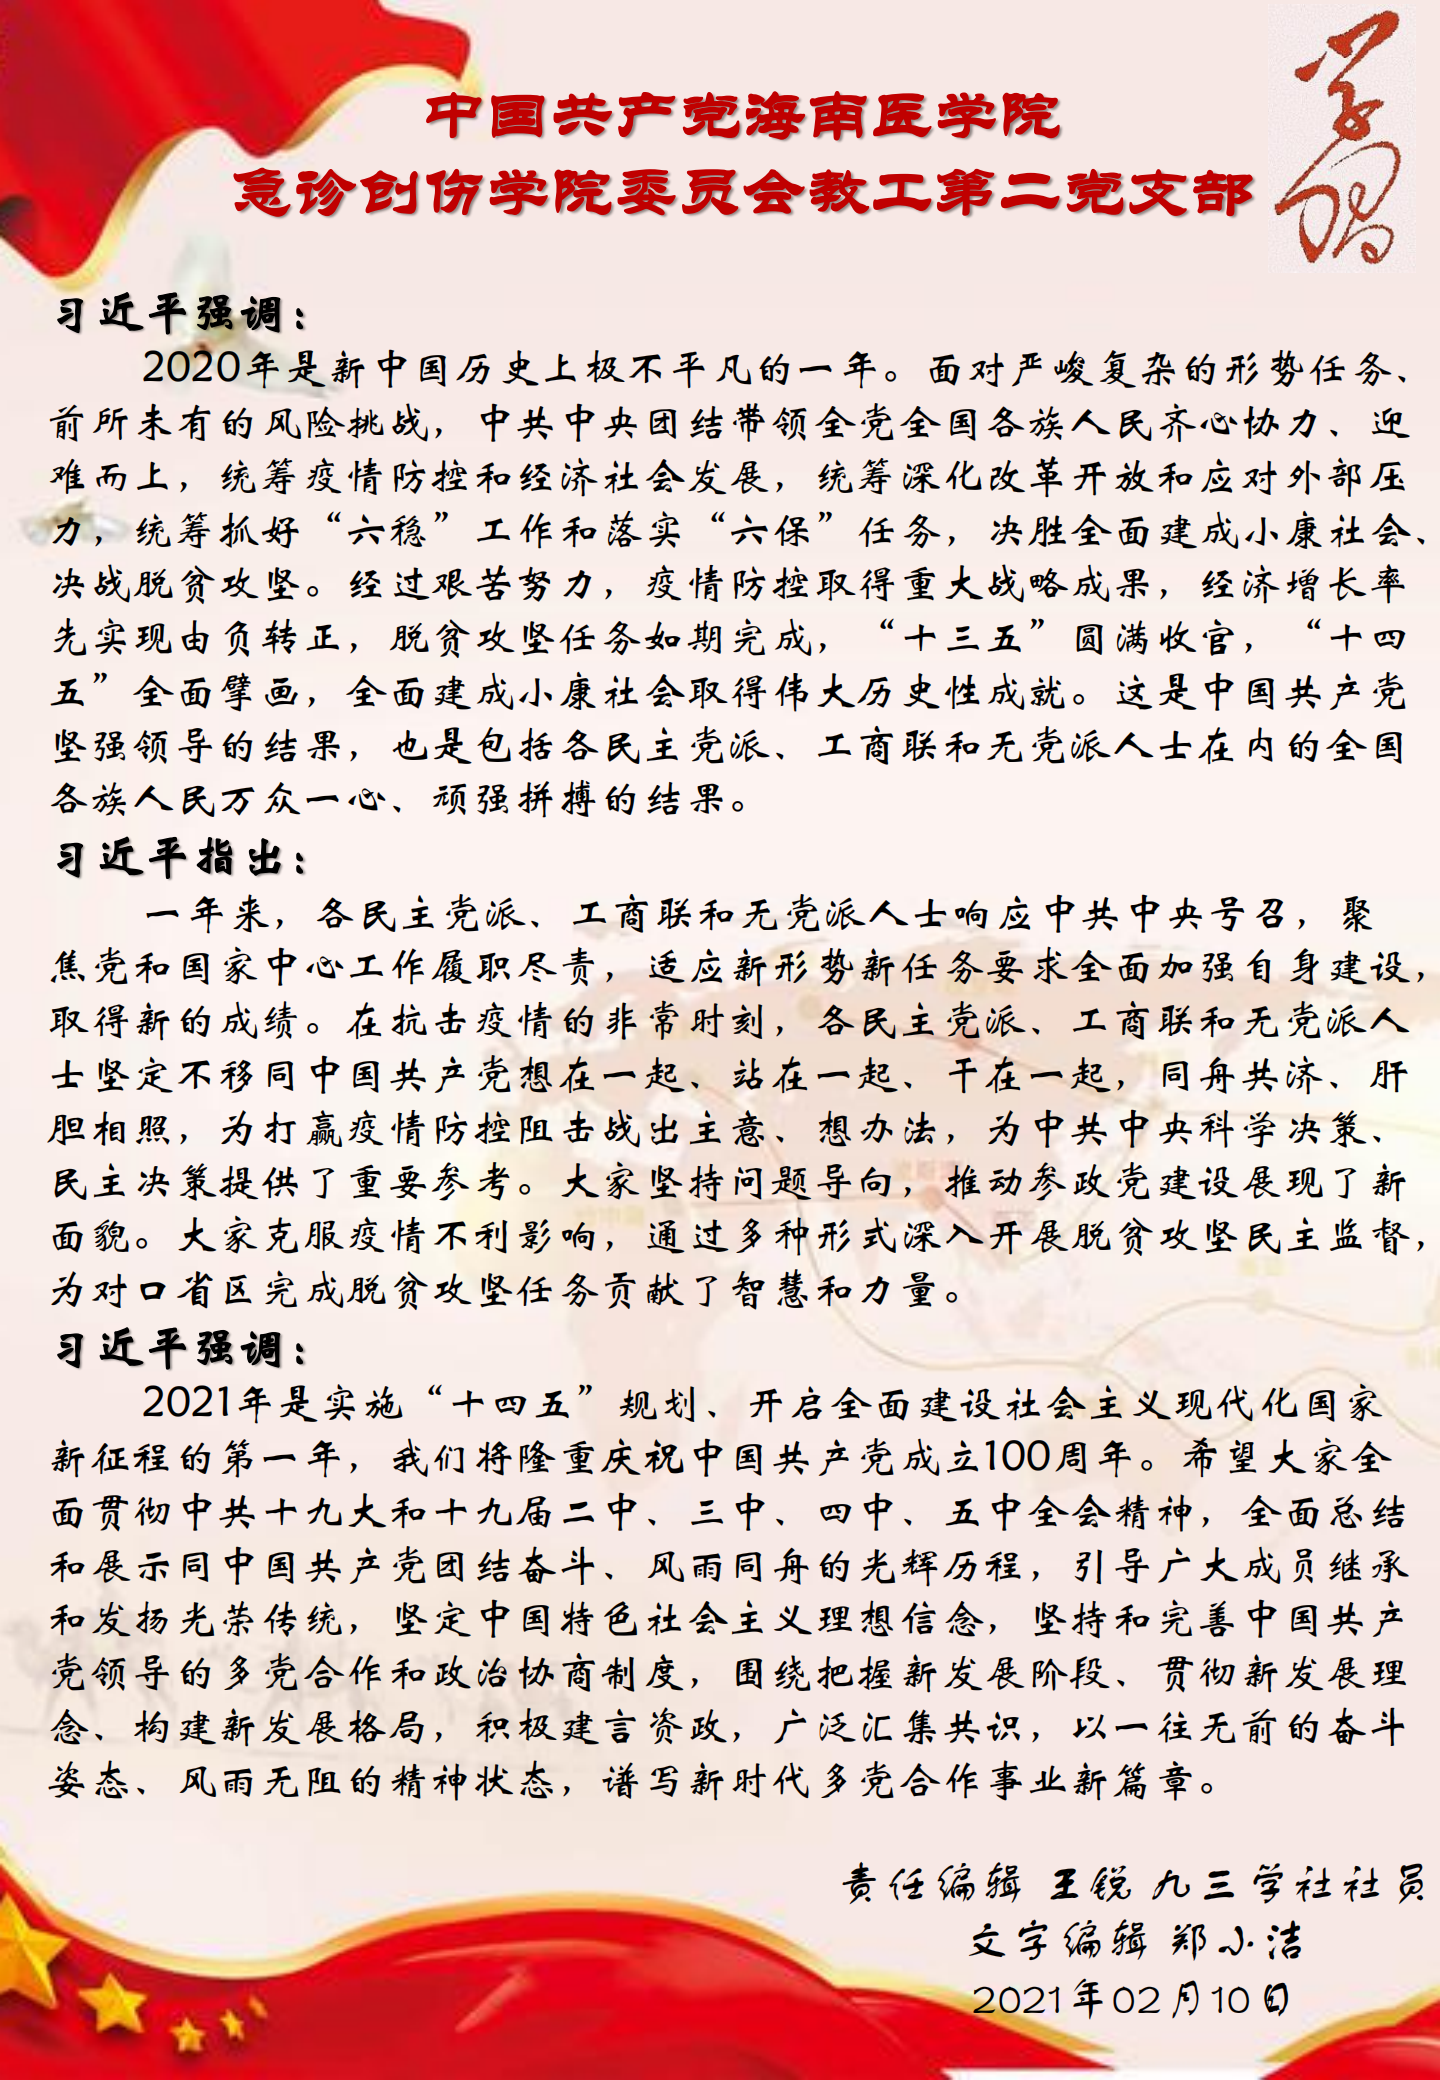 学习
中国共产党海南医学院
急诊创伤学院委员会教工第二党支部
习近平强调：
2020年是新中国历史上极不平凡的一年。面对严峻复杂的形势任务、
前所未有的风险挑战，中共中央团结带领全党全国各族人民齐心协力、迎
难而上，统筹疫情防控和经济社会发展，统筹深化改革开放和应对外部压
力，统筹抓好“六稳”工作和落实“六保”任务，决胜全面建成小康社会、
决战脱贫攻坚。经过艰苦努力，疫情防控取得重大战略成果，经济增长率
先实现由负转正，脱贫攻坚任务如期完成，“十三五”圆满收官，“十四
五”全面擘画，全面建成小康社会取得伟大历史性成就。这是中国共产党
坚强领导的结果，也是包括各民主党派、工商联和无党派人士在内的全国
各族人民万众一心、顽强拼搏的结果。
习近平指出：
一年来，各民主党派、工商联和无党派人士响应中共中央号召，聚
焦党和国家中心工作履职尽责，适应新形势新任务要求全面加强自身建设，
取得新的成绩。在抗击疫情的非常时刻，各民主党派、工商联和无党派人
士坚定不移同中国共产党想在一起、站在一起、干在一起，同舟共济、肝
胆相照，为打赢疫情防控阻击战出主意、想办法，为中共中央科学决策、
民主决策提供了重要参考。大家坚持问题导向，推动参政党建设展现了新
面貌。大家克服疫情不利影响，通过多种形式深入开展脱贫攻坚民主监督，
为对口省区完成脱贫攻坚任务贡献了智慧和力量。
习近平强调：
2021年是实施“十四五”规划、开启全面建设社会主义现代化国家
新征程的第一年，我们将隆重庆祝中国共产党成立100周年。希望大家全
面贯彻中共十九大和十九届二中、三中、四中、五中全会精神，全面总结
和展示同中国共产党团结奋斗、风雨同舟的光辉历程，引导广大成员继承
和发扬光荣传统，坚定中国特色社会主义理想信念，坚持和完善中国共产
党领导的多党合作和政治协商制度，围绕把握新发展阶段、贯彻新发展理
念、构建新发展格局，积极建言资政，广泛汇集共识，以一往无前的奋斗
姿态、风雨无阻的精神状态，谱写新时代多党合作事业新篇章。
责任编辑 王锐 九三学社社员
文字编辑 郑小洁
2021年02月10日